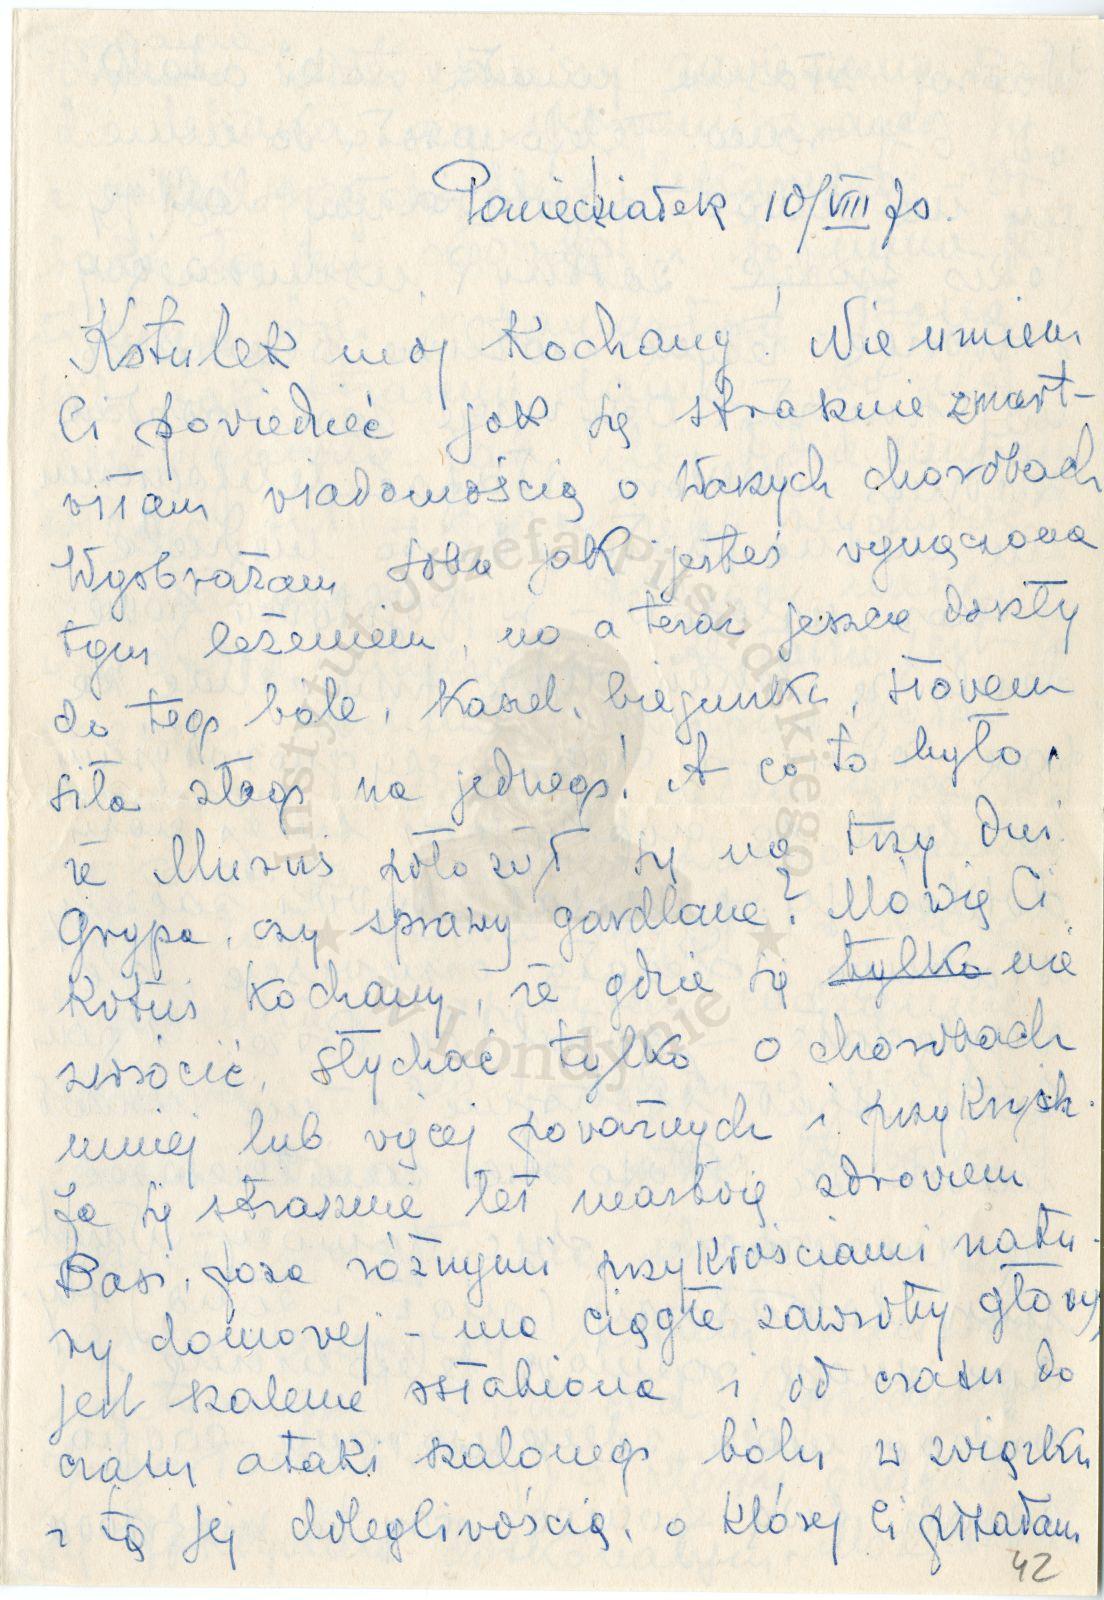 Poniedziałek 10/VIII 70.
Kotulek mój Kochany! Nie umiem
Ci powiedzieć jak się strasznie zmart-
wiłam wiadomością o Waszych chorobach
Wyobrażam sobie jak jesteś wymęczona
tym leżeniem, no a teraz jeszcze doszły
do tego bóle, kaszel, biegunka, słowem
siła złego na jednego! A co to było,
że Muruś położył się na trzy dni.
Grypa, czy sprawy gardlane? Mówię Ci
Kotuś Kochany, że gdzie się tylko nie
zwrócić, słychać tylko o chorobach
mniej lub więcej poważnych i przykrych.
Ja się strasznie też martwię zdrowiem
Basi, poza różnymi przykrościami natu-
ry domowej – ma ciągłe zawroty głowy,
jest szalenie osłabiona i od czasu do
czasu ataki szalonego bólu w związku
z tą jej dolegliwością, o której Ci pisałam
42
Instytut Józefa Piłsudskiego
w Londynie